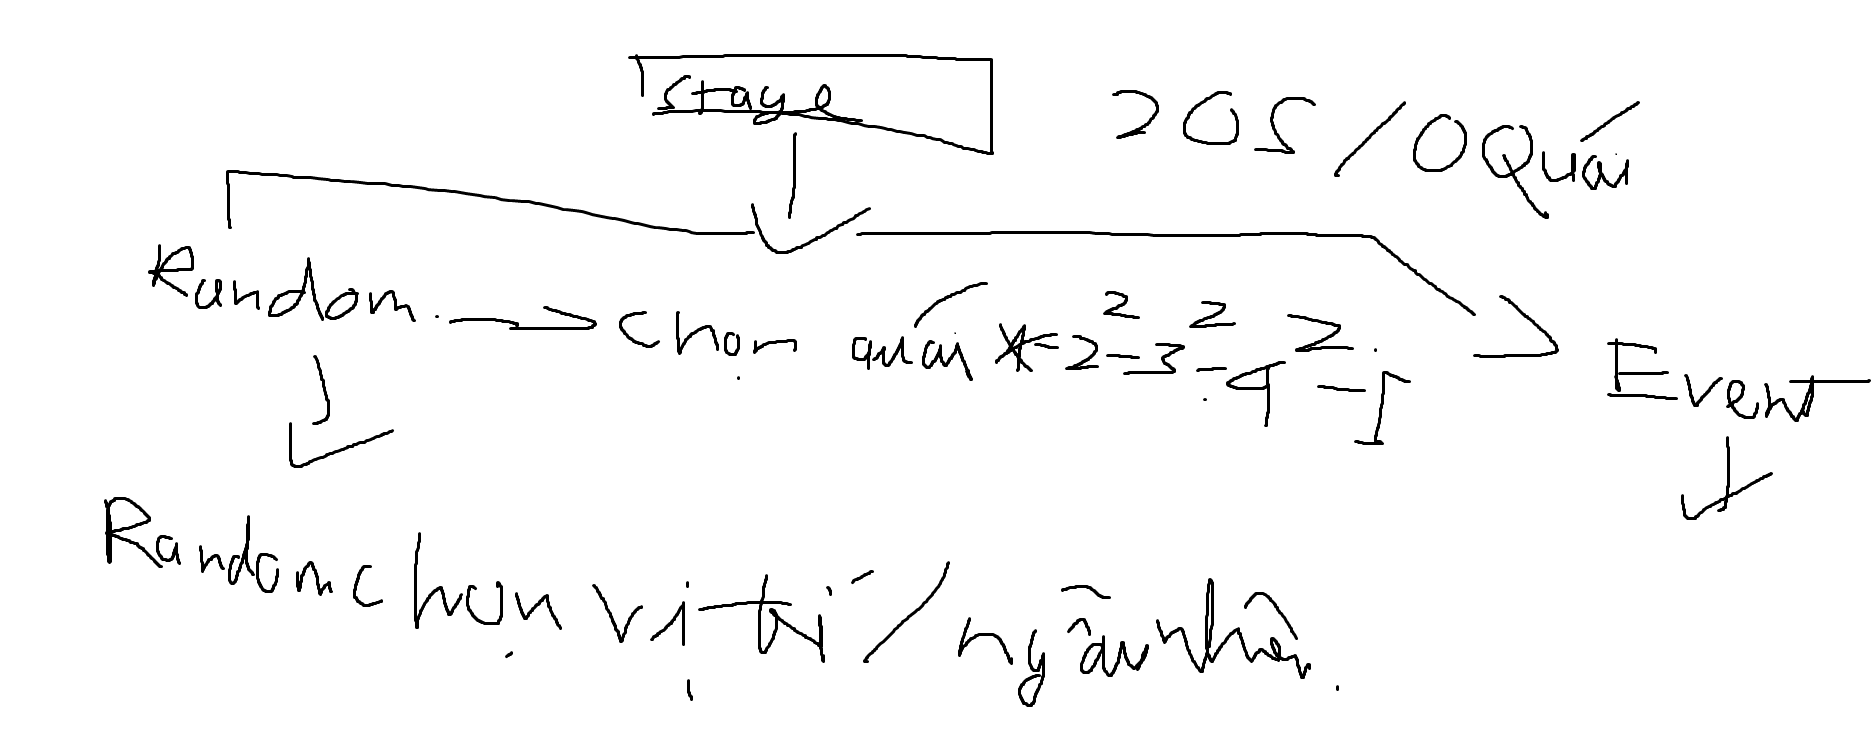 Stage
20S/0Quái
Random. → Chọn quái
Event
Random chọn vị trí / ngẫu nhiên.